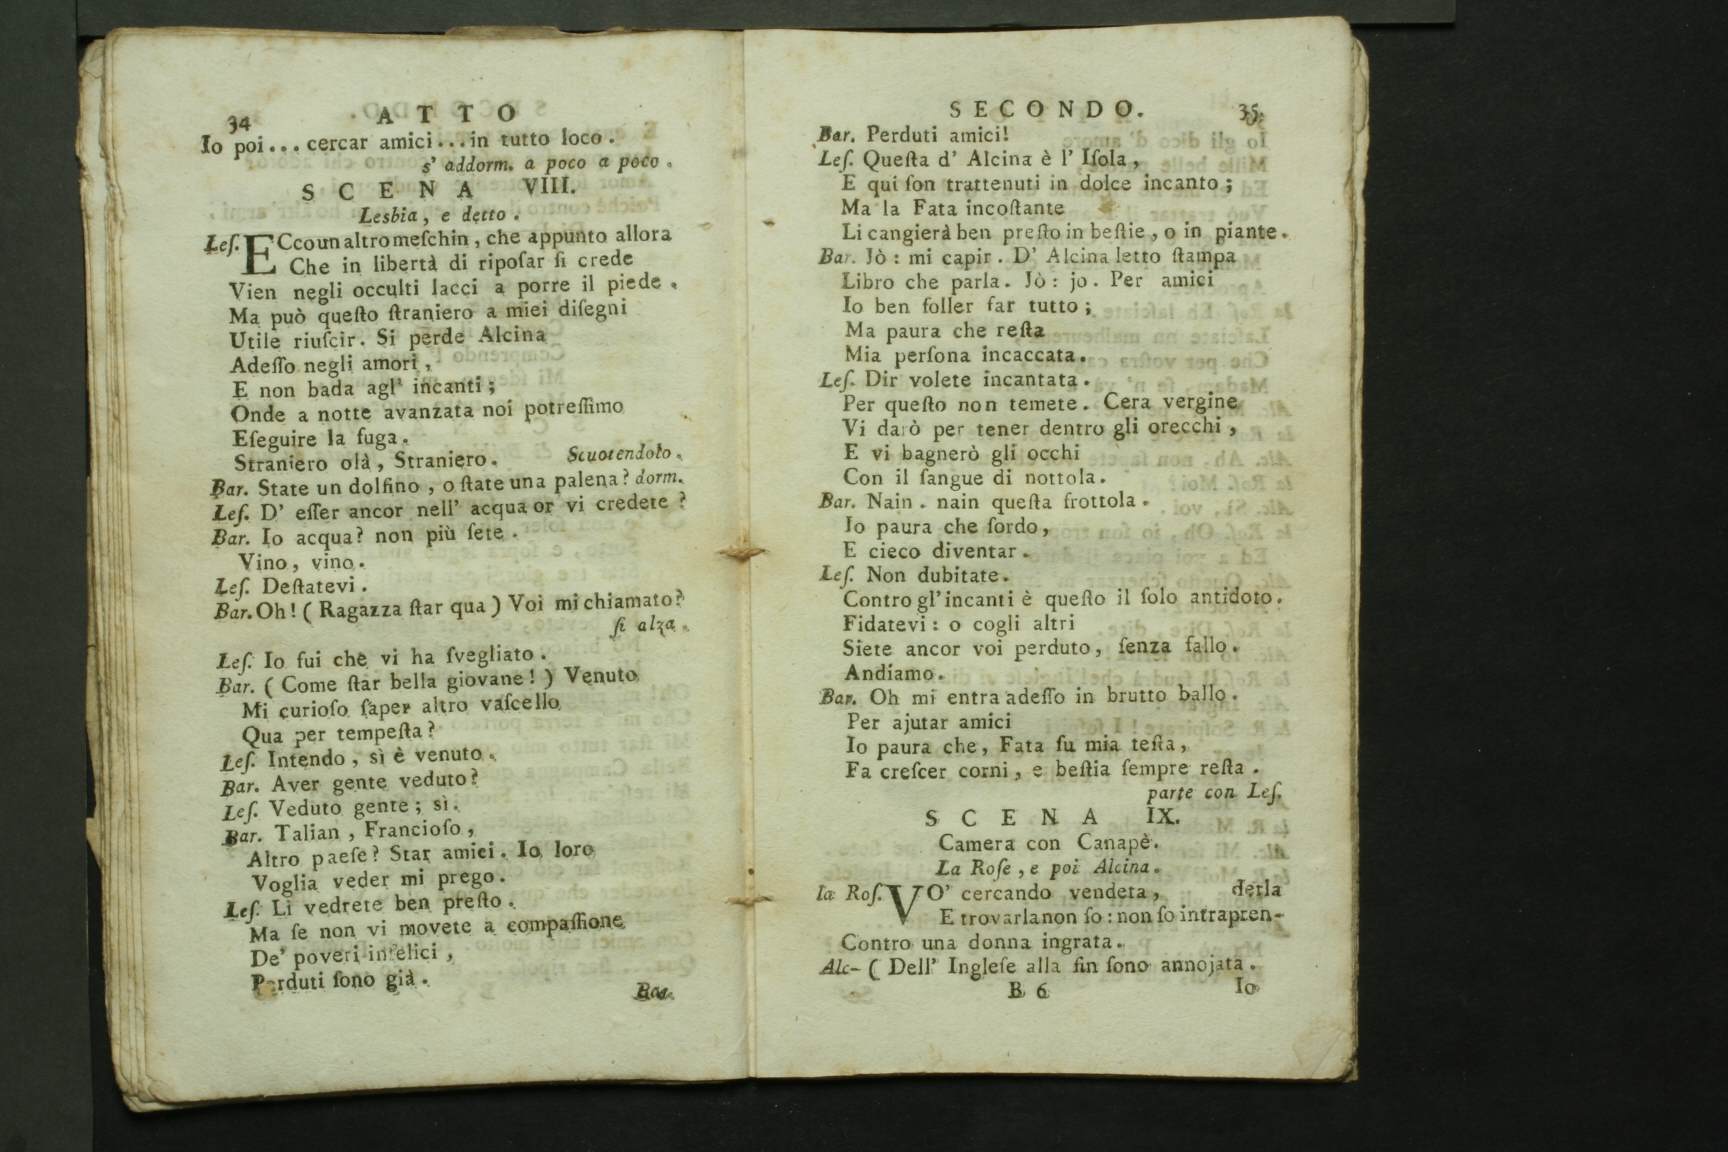 34 A T T O
Io poi... cercar amici... in tutto loco.
s' addorm. a poco a poco.
S C E N A VIII.
Lesbia, e detto.
Leſ. ECco un altro meſchin, che appunto allora
Che in libertà di ripoſar ſi crede
Vien negli occulti lacci a porre il piede.
Ma può queſto ſtraniero a miei diſegni
Utile riuſcir. Si perde Alcina
Adeſſo negli amori,
E non bada agl' incanti;
Onde a notte avanzata noi potreſſimo
Eſeguire la fuga.
Straniero olà, Straniero. Scuotendolo.
Bar. State un dolfino, o ſtate una palena? dorm.
Leſ. D' eſſer ancor nell' acqua or vi credete?
Bar. Io acqua? non più ſete.
Vino, vino.
Leſ. Deſtatevi.
Bar. Oh! ( Ragazza ſtar qua ) Voi mi chiamato?
ſi alza.
Leſ. Io fui che vi ha ſvegliato.
Bar. ( Come ſtar bella giovane! ) Venuto
Mi curioſo ſaper altro vaſcello
Qua per tempeſta?
Leſ. Intendo, sì è venuto.
Bar. Aver gente veduto?
Leſ. Veduto gente; sì.
Bar. Talian, Francioſo,
Altro paeſe? Star amici. Io loro
Voglia veder mi prego.
Leſ. Li vedrete ben preſto.
Ma ſe non vi movete a compaſſione
De' poveri infelici,
Perduti ſono già.
Bar.
S E C O N D O. 35
Bar. Perduti amici!
Leſ. Queſta d' Alcina è l' Iſola,
E qui ſon trattenuti in dolce incanto;
Ma la Fata incoſtante
Li cangierà ben preſto in beſtie, o in piante.
Bar. Jò: mi capir. D' Alcina letto ſtampa
Libro che parla. Jò: jo. Per amici
Io ben foller far tutto;
Ma paura che reſta
Mia perſona incaccata.
Leſ. Dir volete incantata.
Per queſto non temete. Cera vergine
Vi darò per tener dentro gli orecchi,
E vi bagnerò gli occhi
Con il ſangue di nottola.
Bar. Nain. nain queſta frottola.
Io paura che ſordo,
E cieco diventar.
Leſ. Non dubitate.
Contro gl' incanti è queſto il ſolo antidoto.
Fidatevi: o cogli altri
Siete ancor voi perduto, ſenza fallo.
Andiamo.
Bar. Oh mi entra adeſſo in brutto ballo.
Per ajutar amici
Io paura che, Fata ſu mia teſta,
Fa creſcer corni, e beſtia ſempre reſta.
parte con Leſ.
S C E N A IX.
Camera con Canapè.
La Roſe, e poi Alcina.
la Roſ. VO' cercando vendeta, derla
E trovarla non ſo: non ſo intrapren-
Contro una donna ingrata.
Alc- ( Dell' Ingleſe alla fin ſono annojata.
B 6 Io